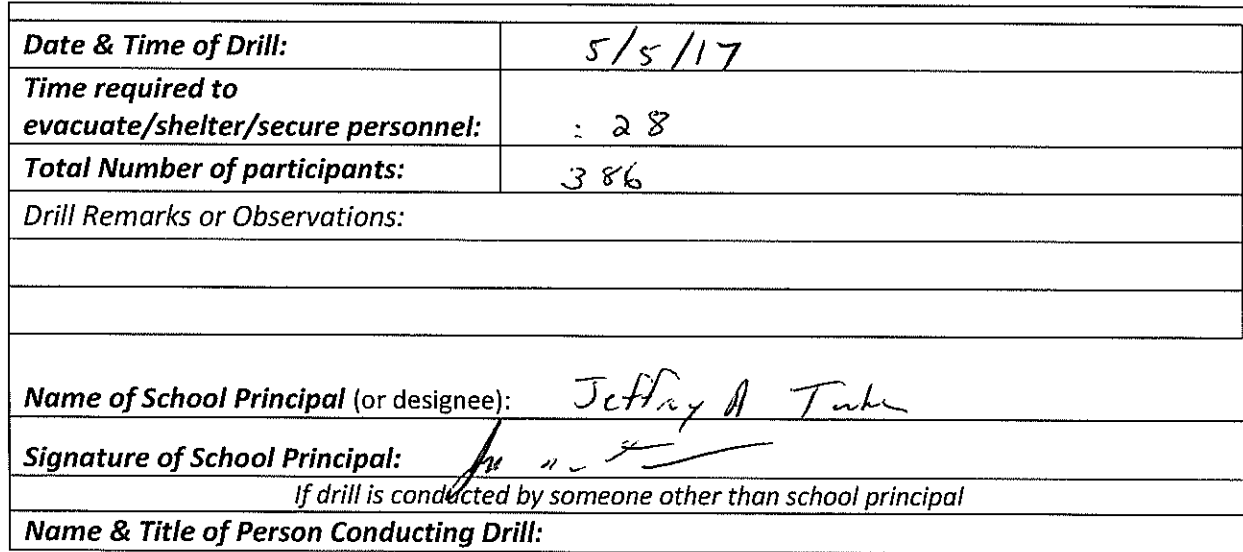 Date & Time of Drill: 5/5/17
Time required to
evacuate/shelter/secure personnel: : 28
Total Number of participants: 386
Drill Remarks or Observations:
Name of School Principal (or designee): Jeffrey A
Signature of School Principal:
If drill is conducted by someone other than school principal
Name & Title of Person Conducting Drill: